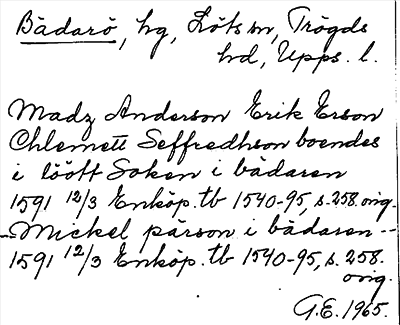 Bådarö, hg, Löts sn, Trögds
hd, Upps. l.
Madz Anderson Erik Erson
Chlemett Seffredhson boendes
i lööft Soken i bådaren
1591 12/3 Enköp. tb 1540-95, s. 258. orig.
-- Mickel pärson i bådaren --
1591 12/3 Enköp. tb 1540-95, s. 258.
orig.
G.E. 1965.